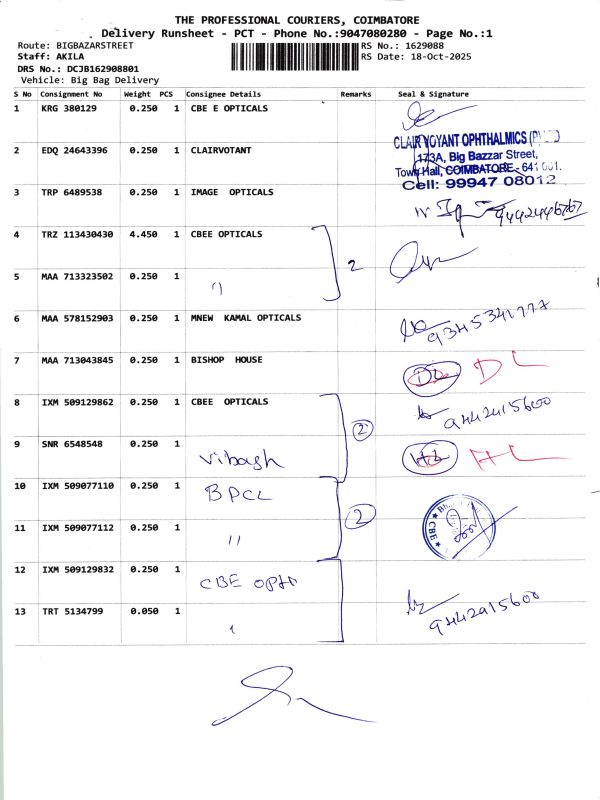 THE PROFESSIONAL COURIERS, COIMBATORE
Delivery Runsheet - PCT - Phone No.:9047080280 - Page No.:1
Route: BIGBAZARSTREET RS No.: 1629088
Staff: AKILA RS Date: 18-Oct-2025
DRS No.: DCJB162908801
Vehicle: Big Bag Delivery
S No Consignment No Weight PCS Consignee Details Remarks Seal & Signature
1 KRG 380129 0.250 1 CBE E OPTICALS
2 EDQ 24643396 0.250 1 CLAIRVOTANT
CLAIR VOYANT OPHTHALMICS
173A, Big Bazzar Street,
Town Hall, COIMBATORE - 641 001.
Cell: 99947 08012
3 TRP 6489538 0.250 1 IMAGE OPTICALS
4 TRZ 113430430 4.450 1 CBEE OPTICALS
2
5 MAA 713323502 0.250 1 "
6 MAA 578152903 0.250 1 MNEW KAMAL OPTICALS
7 MAA 713043845 0.250 1 BISHOP HOUSE DL DL
8 IXM 509129862 0.250 1 CBEE OPTICALS 9442415600
2
9 SNR 6548548 0.250 1 Vibash HL HL
10 IXM 509077110 0.250 1 BPCL
2
CBE
11 IXM 509077112 0.250 1 "
12 IXM 509129832 0.250 1 CBE OPTI
13 TRT 5134799 0.050 1 9442915600